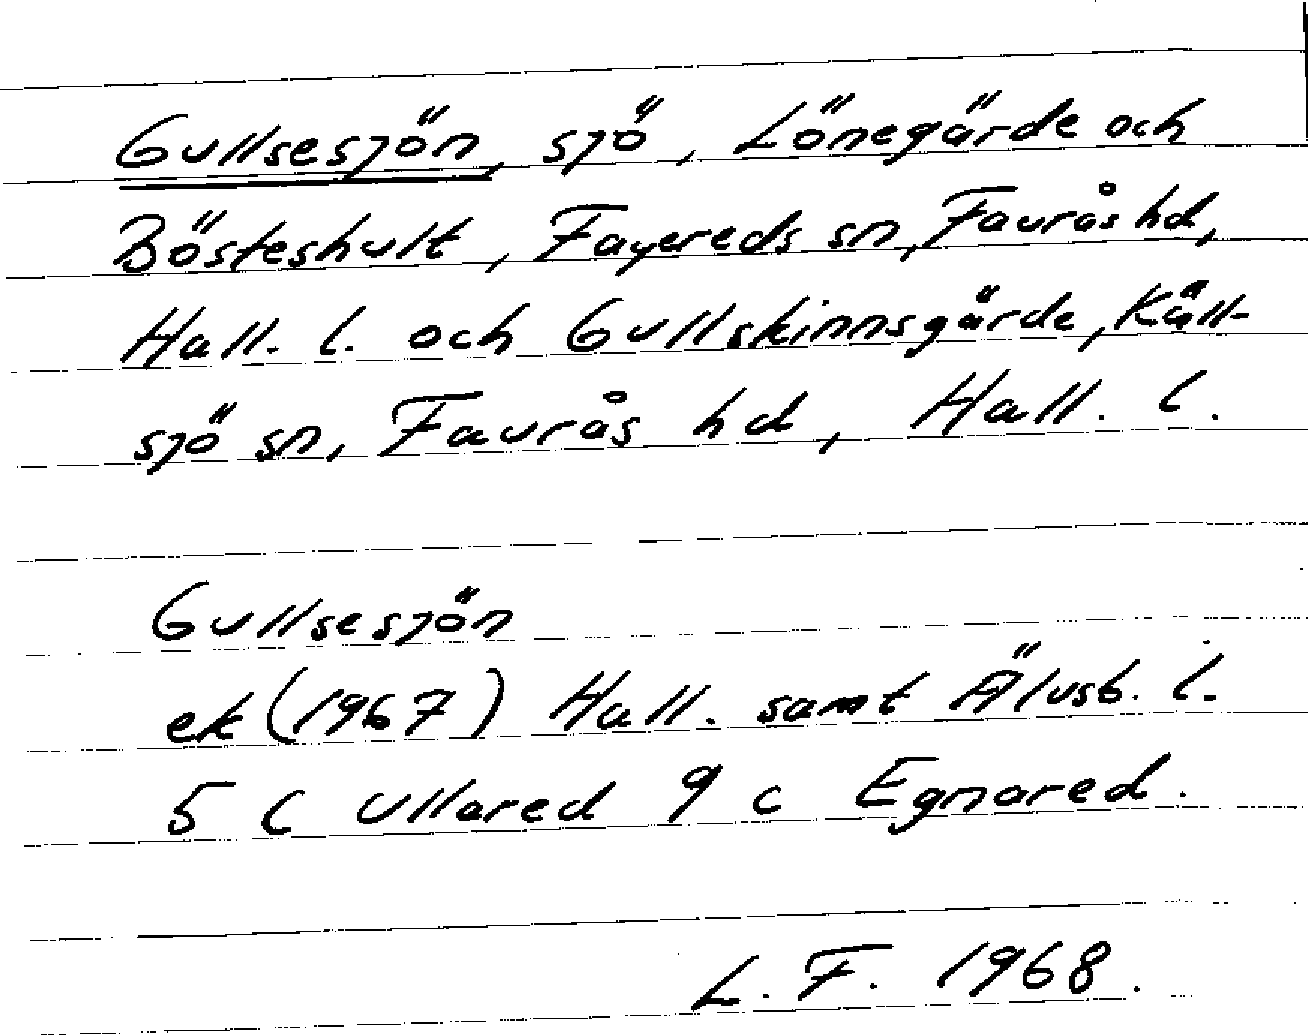 Gullsesjön, sjö, Lönegärde och
Bösteshult, Fagereds sn, Faurås hd,
Hall. l. och Gullskinnsgärde, Käll-
sjö sn, Faurås hd, Hall. l.
Gullsesjön
ek (1967) Hall. samt Älvsb. l.
5 C Ullared 9 c Egnared.
L. F. 1968.